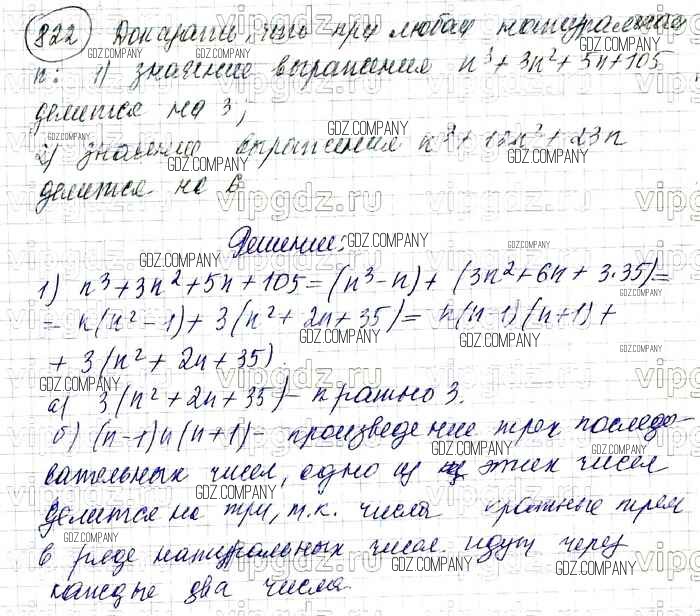 822 Доказать, что при любом натуральном
n: 1) значение выражения n³ + 3n² + 5n + 105
делится на 3;
2) значение выражения n³ + 12n² + 23n
делится на 6
Решение:
1) n³ + 3n² + 5n + 105 = (n³ - n) + (3n² + 6n + 3·35) =
= n(n² - 1) + 3(n² + 2n + 35) = n(n-1)(n+1) +
+ 3(n² + 2n + 35).
а) 3(n² + 2n + 35) - кратно 3.
б) (n-1)n(n+1) - произведение трех последо-
вательных чисел, одно из этих чисел
делится на три, т.к. числа кратные трем
в ряде натуральных чисел идут через
каждые два числа